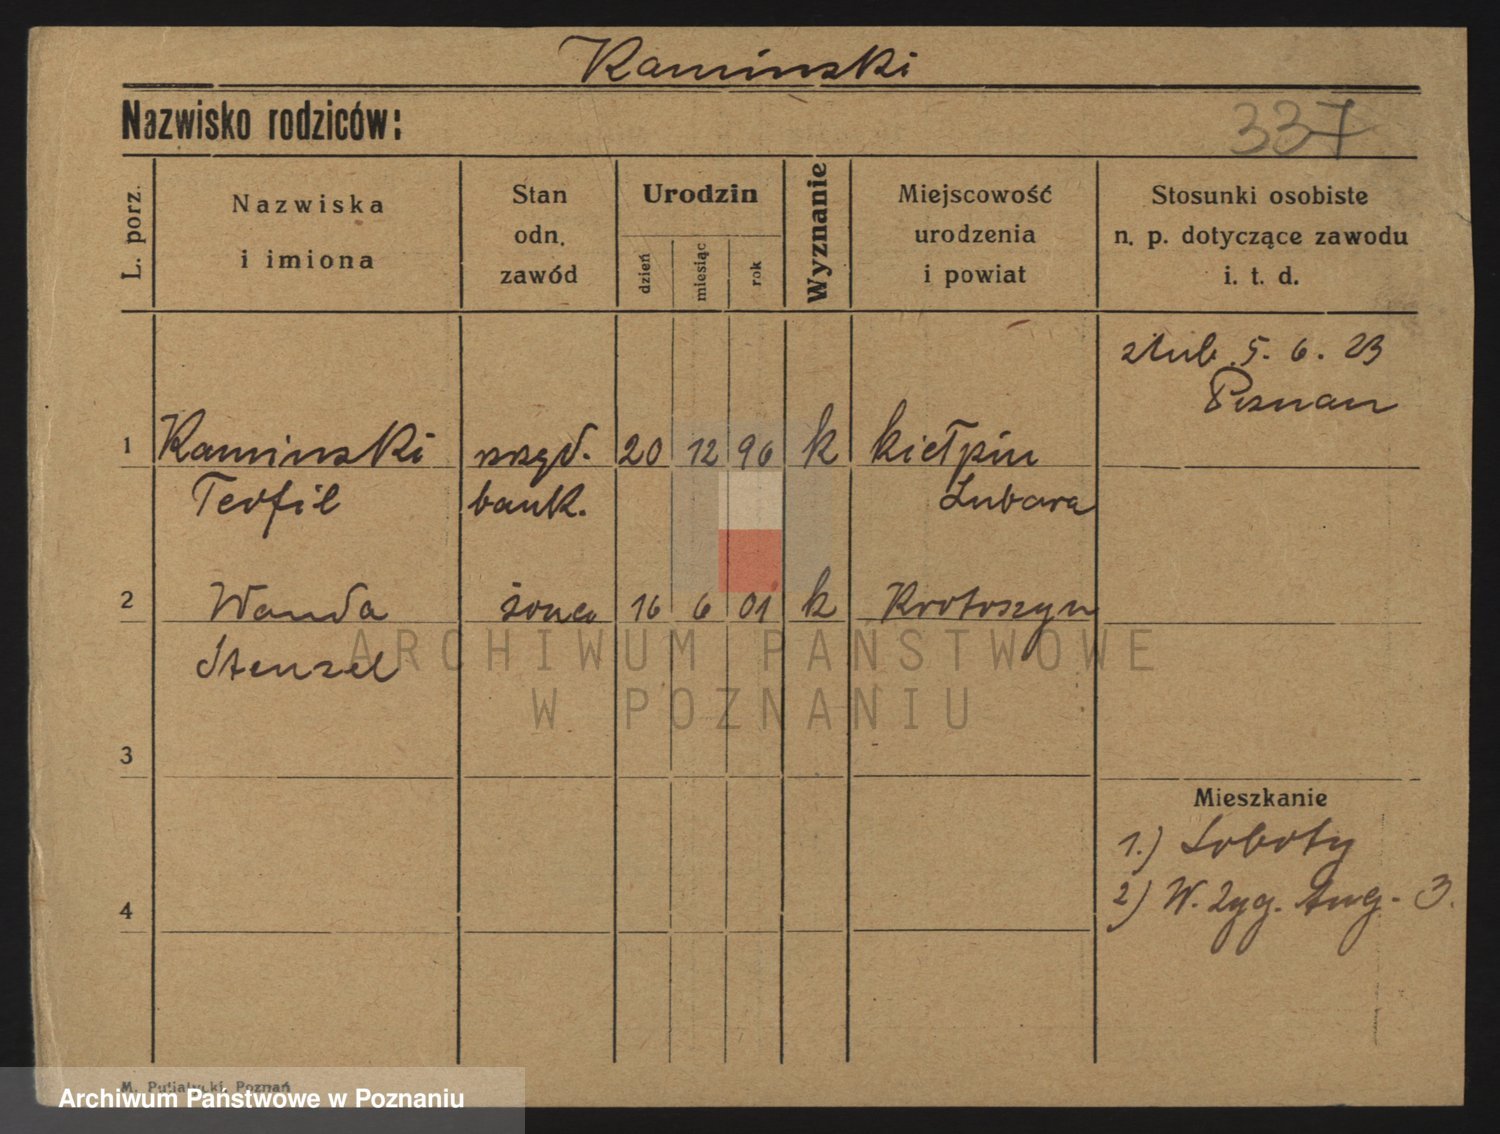 Kaminski
Nazwisko rodziców:
337
L. porz.
Nazwiska
i imiona
Stan
odn.
zawód
Urodzin
dzień
miesiąc
rok
Wyznanie
Miejscowość
urodzenia
i powiat
Stosunki osobiste
n. p. dotyczące zawodu
i. t. d.
ślub 5. 6. 23
Poznan
1 Kaminski urzęd. 20 12 96 k Kiełpin
Teofil bank. Lubawa
2 Wanda żona 16 6 01 k Krotoszyn
Stenzel
ARCHIWUM PAŃSTWOWE
W POZNANIU
3
Mieszkanie
1.) Soboty
2) W. Zyg. Aug. 3.
4
M. Putiatycki, Poznań
Archiwum Państwowe w Poznaniu